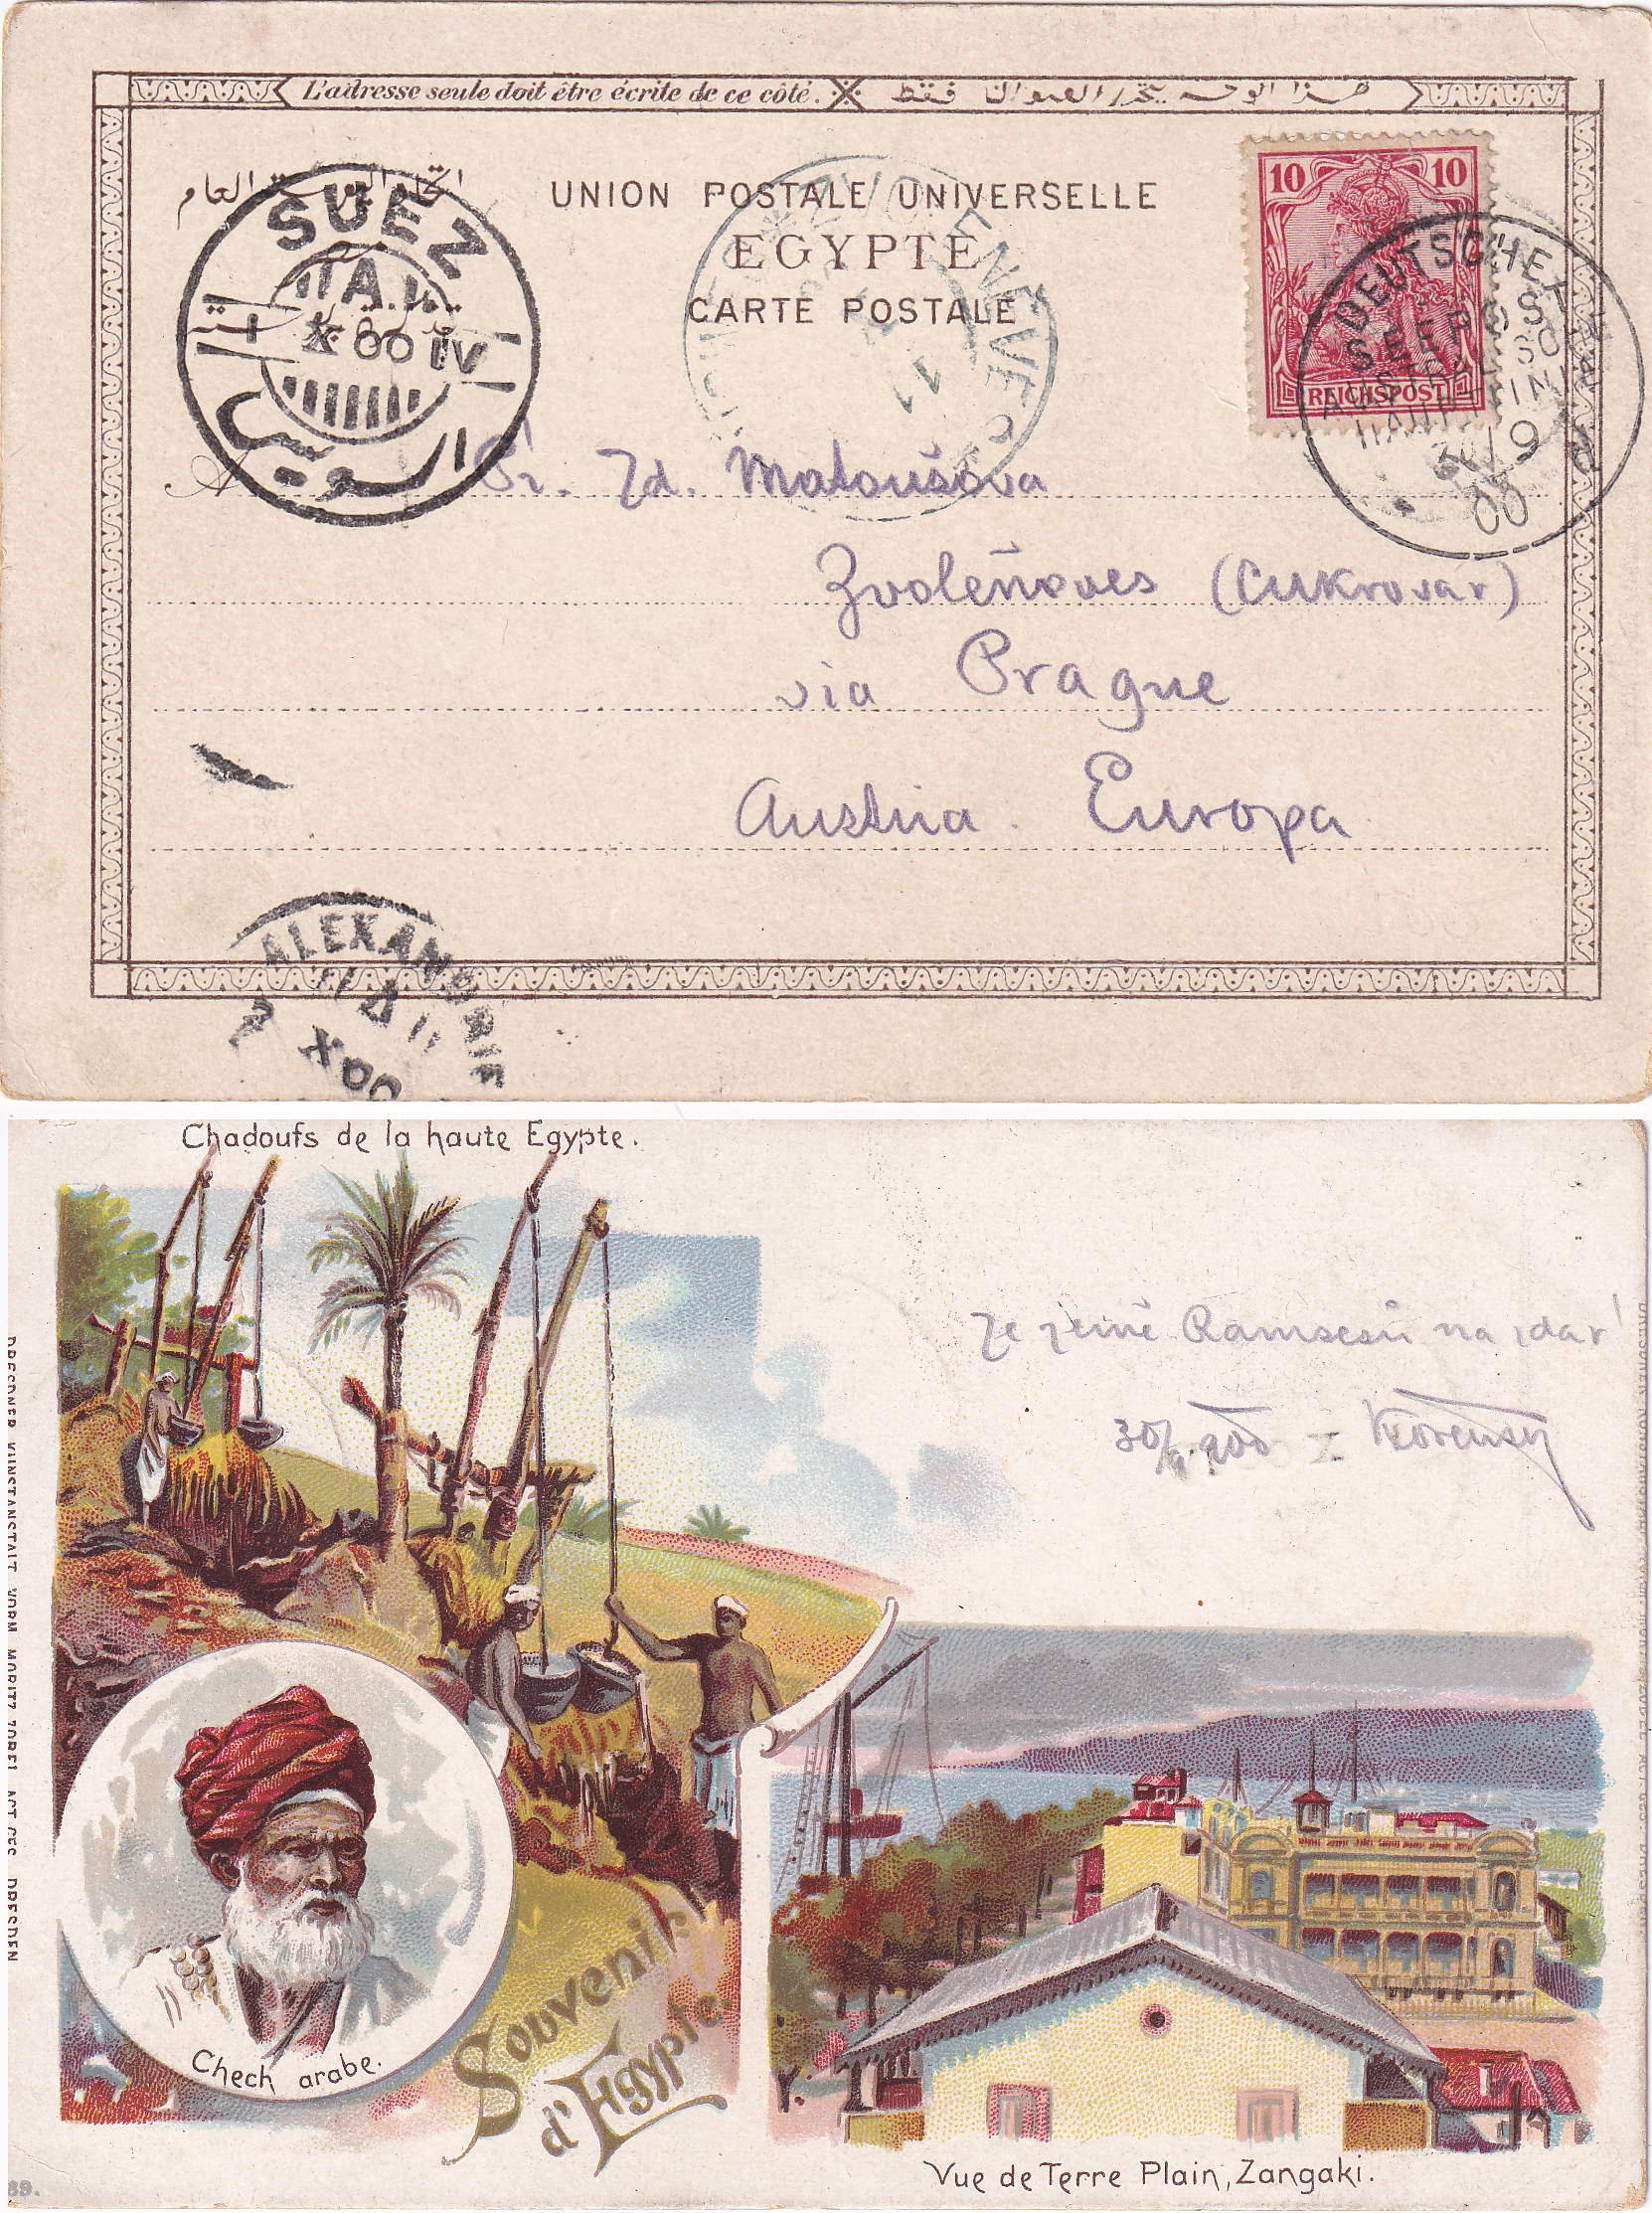 L'adresse seule doit être écrite de ce côté. هذا الوجه يتحرر العنوان فقط
اتحاد البوسته العام
UNION POSTALE UNIVERSELLE
EGYPTE
CARTE POSTALE
SUEZ
I X 00 IV
السويس
10 10
REICHSPOST
DEUTSCHE
SEEPOST
AUSTRAL
HAUPT
30/9
00
Zd. Matoušova
Zvoleňoves (Cukrovar)
via Prague
Austria. Europa
ALEXANDRIE
Chadoufs de la haute Egypte.
Ze země Ramsesů na zdar!
30/9 900 Kořenský
DRESDNER KUNSTANSTALT VORM MORITZ ZOBEL ACT GES DRESDEN
Chech arabe.
Souvenir
d'Egypte.
Vue de Terre Plain, Zangaki.
89.